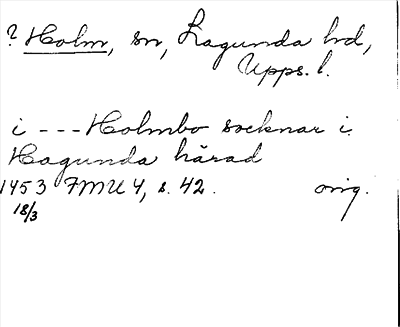 ? Holm, sn, Lagunda hd,
Upps. l.
i --- Holmbo socknar i
Hagunda härad
1453 FMU 4, s. 42. orig.
18/3